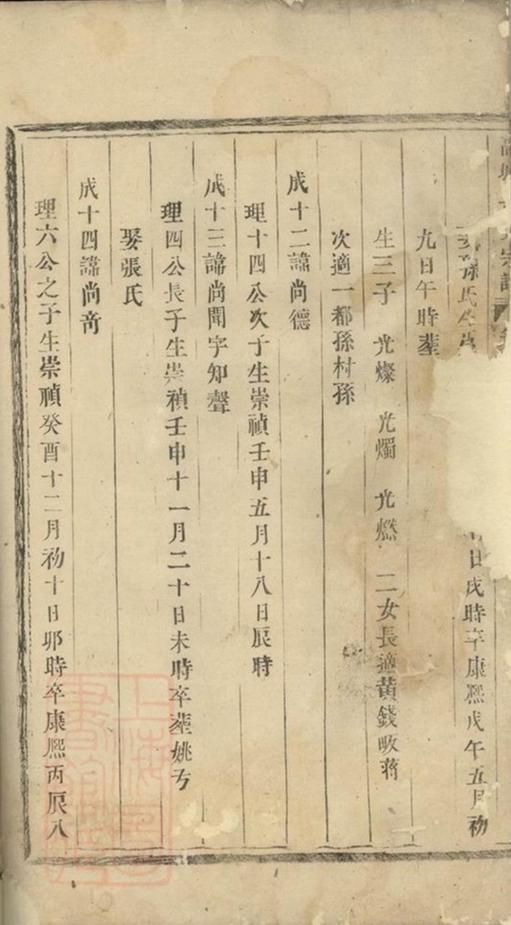 孫氏生
日戌時卒康熙戊午五月初
九日午時葬
生三子　光燦　光燭　光燃　二女長適黄錢畈蔣
次適一都孫村孫
成十二諱尚德
理十四公次子生崇禎壬申五月十八日辰時
成十三諱尚聞字知聲
理四公長子生崇禎壬申十一月二十日未時卒葬姚方
娶張氏
成十四諱尚奇
理六公之子生崇禎癸酉十二月初十日卯時卒康熙丙辰八